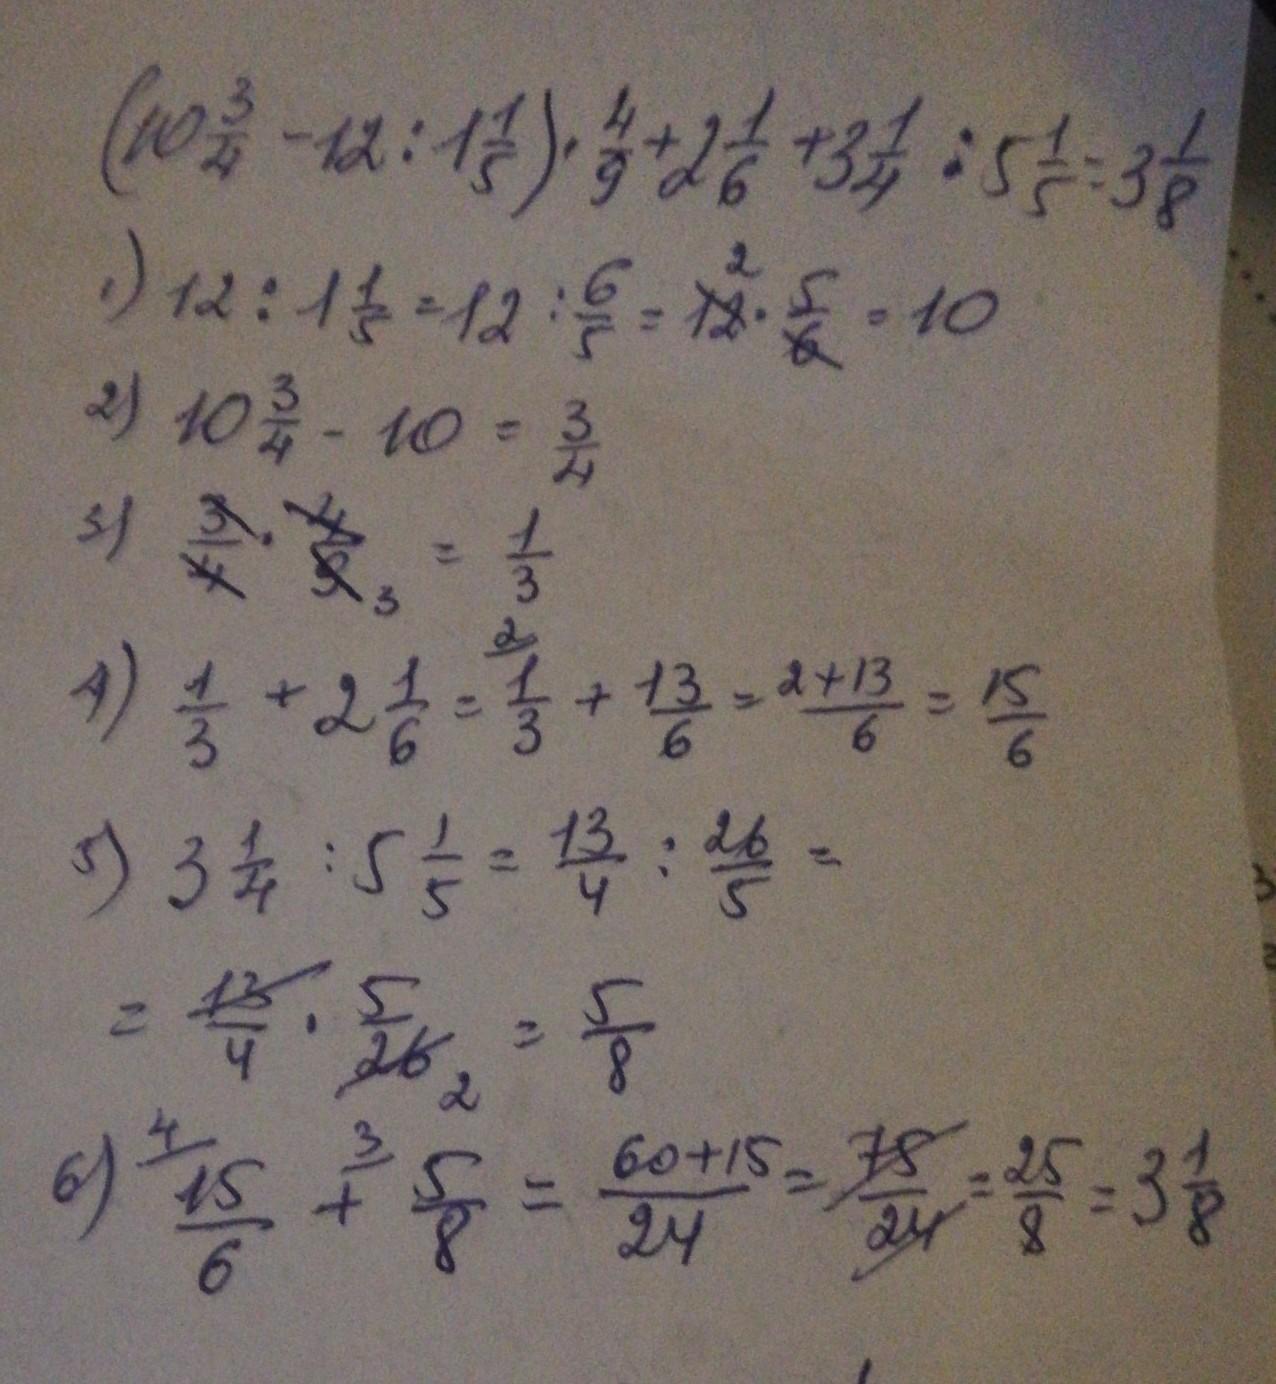 (10 3/4 - 12 : 1 1/5) · 4/9 + 2 1/6 + 3 1/4 : 5 1/5 = 3 1/8
1) 12 : 1 1/5 = 12 : 6/5 = 12 2 · 5/6 = 10
2) 10 3/4 - 10 = 3/4
3) 3/4 · 4/9 3 = 1/3
4) 1/3 + 2 1/6 = 2 1/3 + 13/6 = 2+13/6 = 15/6
5) 3 1/4 : 5 1/5 = 13/4 : 26/5 =
= 13/4 · 5/26 2 = 5/8
6) 4 15/6 + 3 5/8 = 60+15/24 = 75/24 = 25/8 = 3 1/8